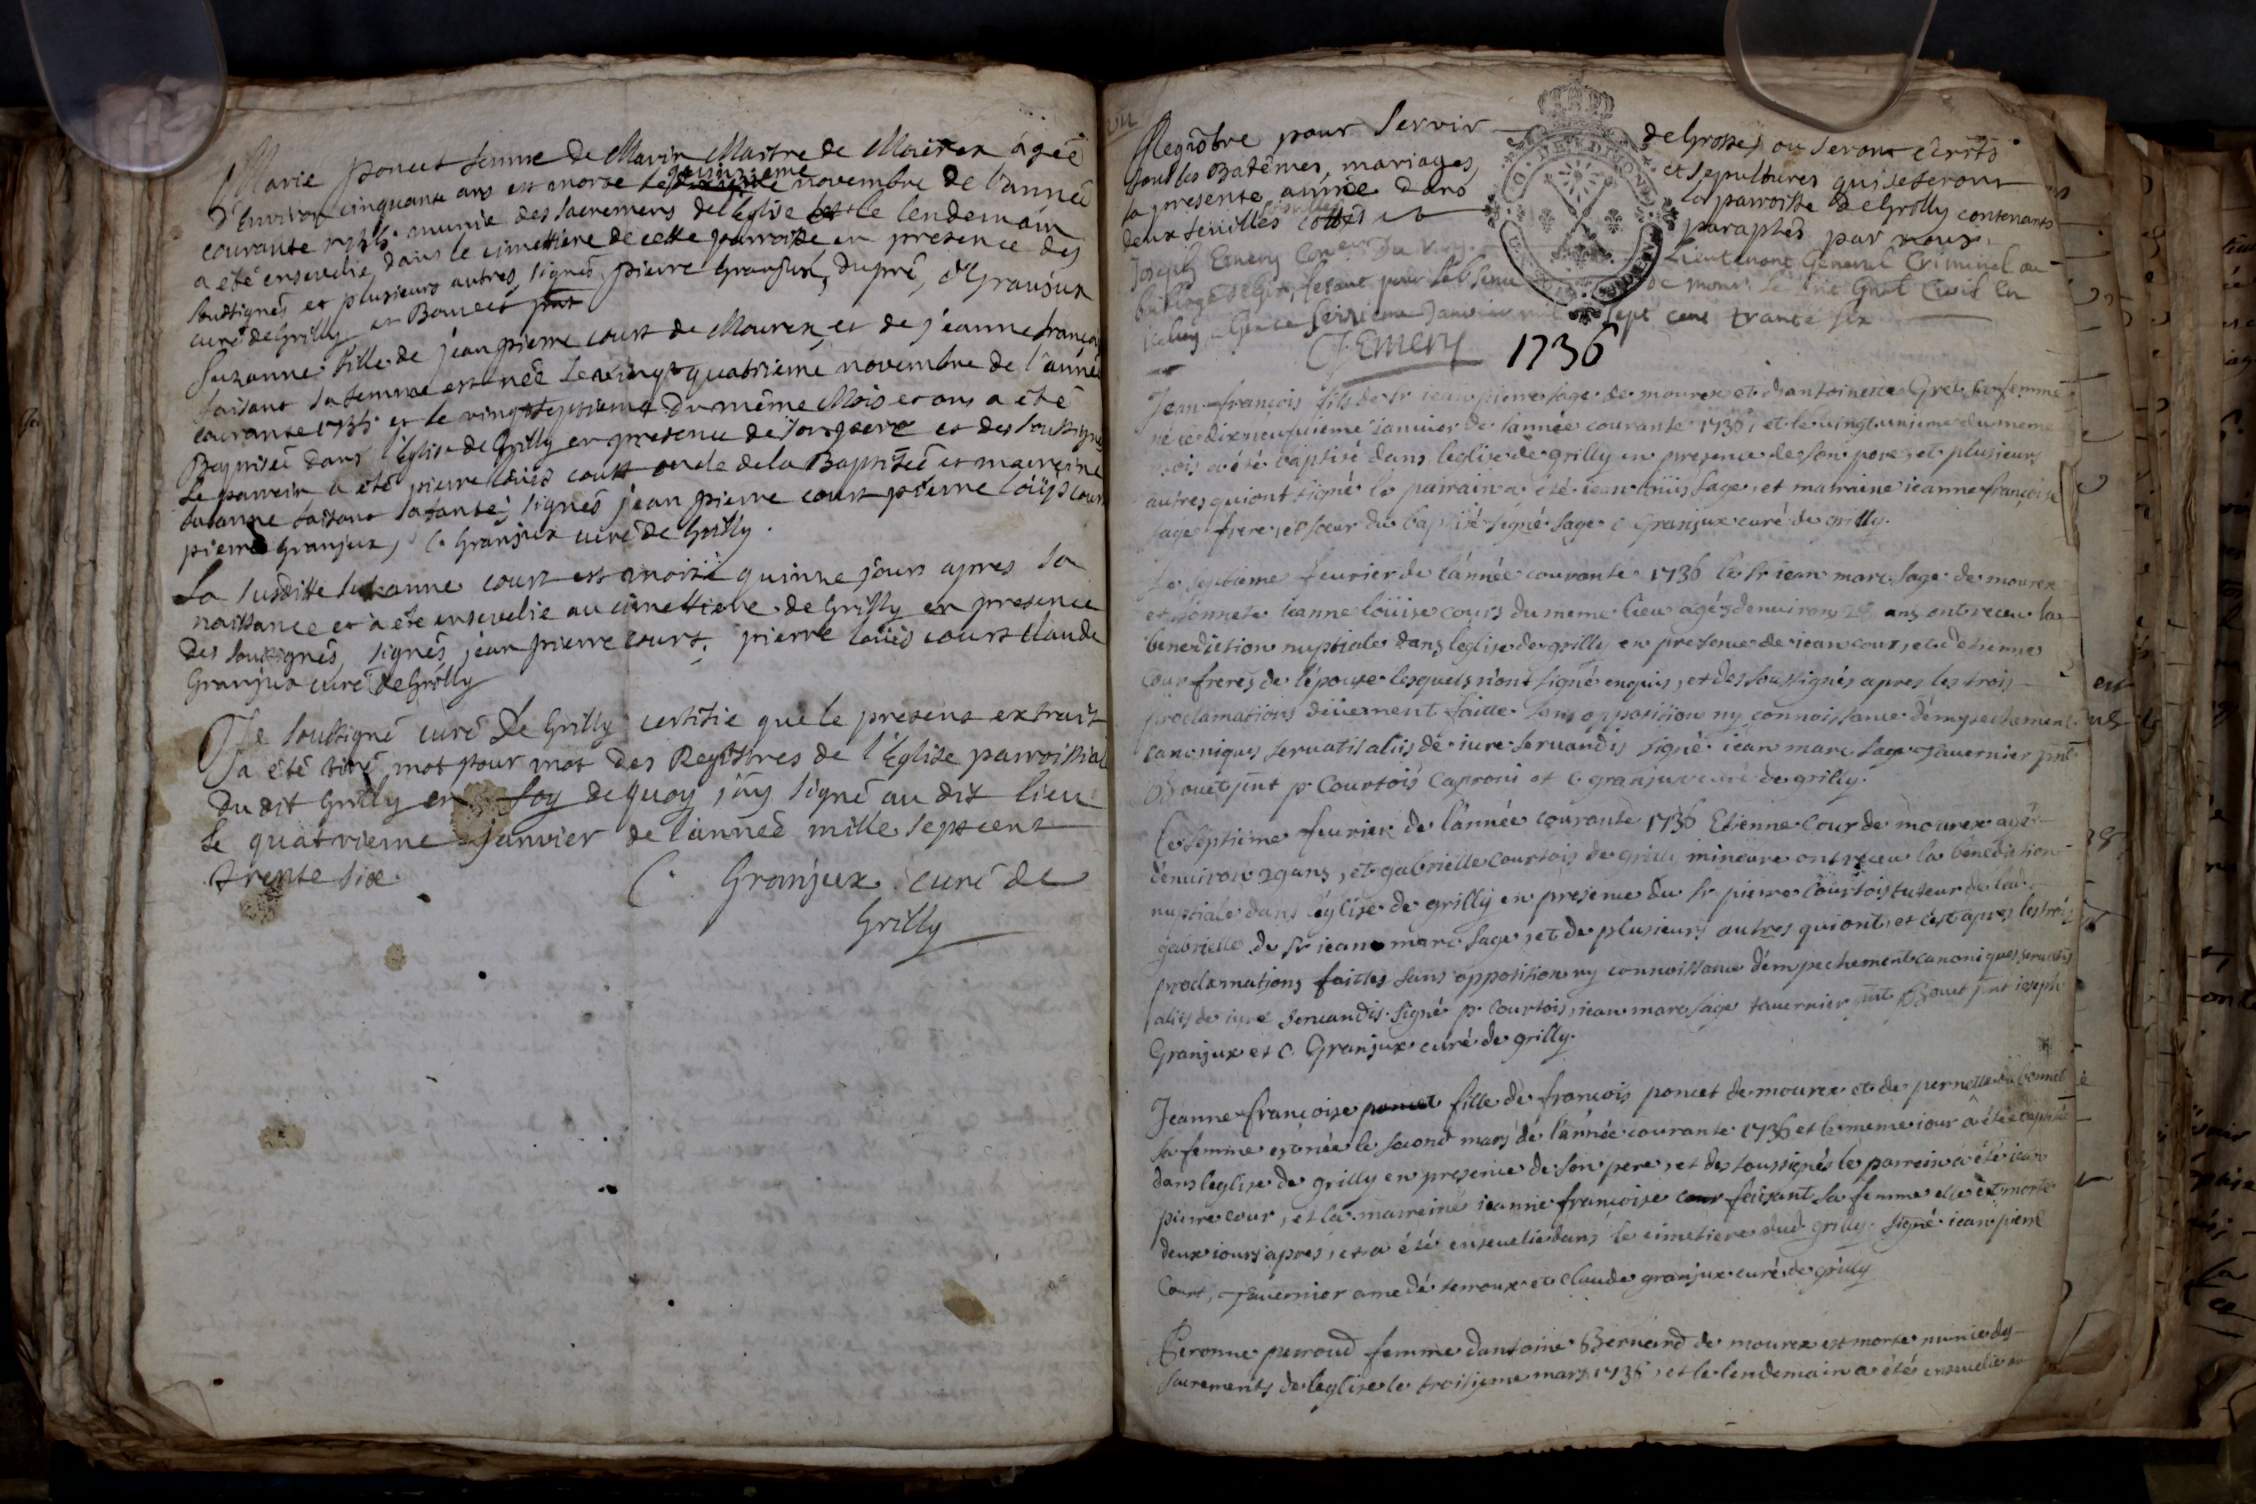 Marie poncet femme de Marin Maitre de Mourex âgeé
d'Environ cinquante ans est morte le quinzieme novembre de l'anneé
courante 1735. munie des sacremens de l'Eglise et le lendemain
a été ensevelie dans le cimettiere de cette parroisse en presence des
soussignés et plusieurs autres, signés, pierre Granjux, Dupré, C. Granjux
curé de Grilly et Bouvet
Suzanne fille de jean pierre court de Mourex, et de jeanne françoise
faisant sa femme est neé le vingt quatrieme novembre de l'anneé
courante 1735 et le vingtseptieme du même Mois et an a été
Baptiseé dans l'Eglise de Grilly en presence de son pere et des soussignés
Le parrein a été pierre loüis court oncle de la Baptiseé et marreine
suzanne faisant sa tante, signés jean pierre court pierre loüis court
pierre Granjux, C. Granjux curé de Grilly.
La susditte suzanne court est morte quinze jours apres sa
naissance et à été ensevelie au cimettiere de Grilly en presence
des soussignés, signés jean pierre court, pierre loüis court claude
Granjux curé de Grilly
Je soussigné curé de Grilly certifie que le present extrait
a été tiré mot pour mot des Registres de l'Eglise parroissial
du dit Grilly en foy de quoy j'ay signé au dit lieu
le quatrieme janvier de l'anneé mille sept cent
trente six.
C. Granjux curé de
Grilly
Registre pour servir de Grosse, ou seront écrits
tous les Batêmes, mariages, et sepultures qui se feront
la presente anneé dans la parroisse de Grilly contenants
deux feuilles cottés et paraphés par nous
Joseph Emery Con.er du Roy Lieutenant General Criminel au
bailliage de Gex, fesant pour l'absence de mons. le Lieut Gnal Civil en
Gex ce Janvier mil sept cent trante six
J Emery 1736
Jean françois fils de sr iean pierre sage de mourex et d'antoinette Gret sa femme
né le dixneufuieme ianuier de lannée courante 1736, et le uingtunieme du meme
mois a été baptisé dans leglise de grilly en presence de son pere, et plusieurs
autres qui ont signé le pairain a été iean loüis sage, et maraine ieanne françoise
sage frere, et soeur du baptisé signé sage C Granjux curé de grilly.
Le septieme feurier de lánnée courante 1736 le sr iean marc sage de mourex
et honnete ieanne loüise cours du meme lieu agés denuiron ans ont receu la
benediction nuptiale dans leglise de grilly en presence de iean cour, et detienne
cour freres de lépouse lesquels n'ont signé enquis, et des soussignés apres les trois
proclamations düement faitte sans opposition ny connoissance démpechement
canoniques seruatis aliis de iure seruandis signé iean marc sage tauernier pnt
Bouet pnt p. Courtois Caproni et C granjux curé de grilly.
Le septieme feurier de lánnée courante 1736 Etienne Cour de mourex agé
denuiron 29 ans, et gabrielle courtois de grilli mineure ont receu la benediction
nuptiale dans léglise de grilly en presence du sr pierre Courtois tuteur de lad.
gabrielle de sr iean marc sage, et de plusieurs autres qui ont, et c'est apres les trois
proclamations faittes sans opposition ny connoissance démpechement canoniques seruatis
aliis de iure seruandis signé p. Courtois, iean marc sage tauernier pnt Bouet pnt ioseph
Granjux et C. Granjux curé de grilly.
Jeanne françoise poncet fille de françois poncet de mourex et de pernette
sa femme est née le second mars de l'année courante 1736 et le meme iour â été baptisée
dans leglise de grilly en presence de son pere, et des soussignés le parrein a été iean
pierre cour, et la marreine ieanne françoise cour faisant sa femme elle est morte
deux iours apres, et a été enseuelie dans le cimetiere dud grilly signé iean pierre
Court, Tauernier amedé terroux et Claude granjux curé de grilly
Peronne perroud femme dantoine Bernard de mourex est morte munie des
sacrements de leglise le troisieme mars 1736, et le lendemain a été enseuelie au